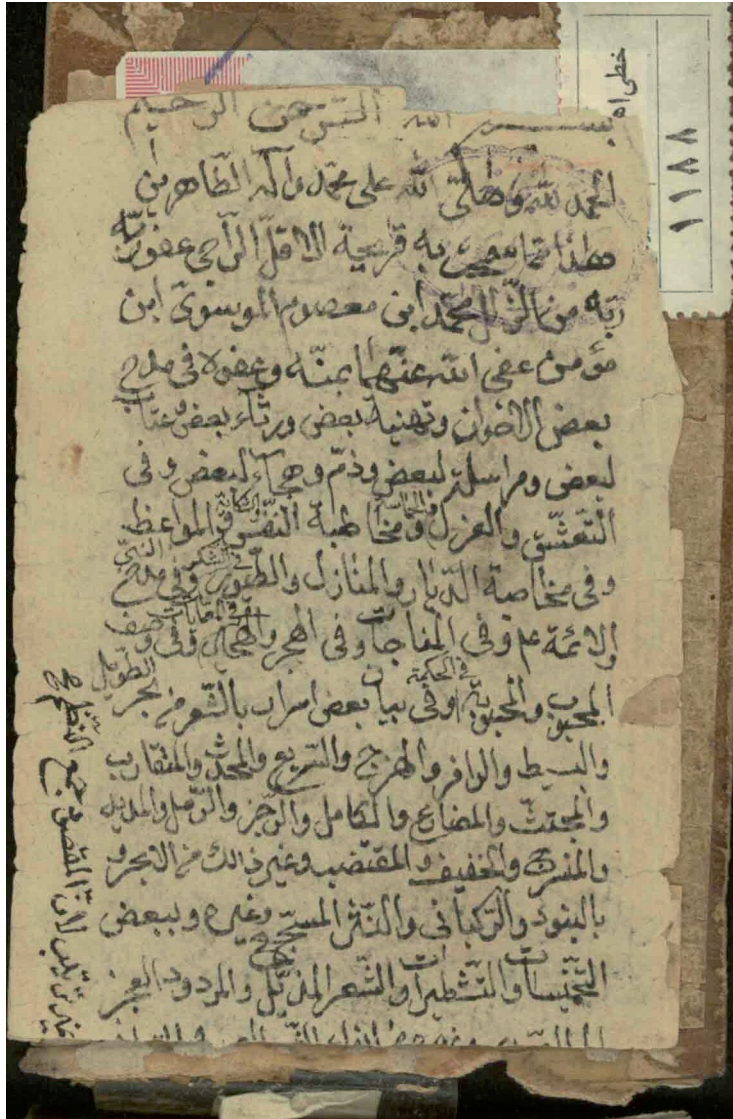 بسم الله الرحمن الرحيم
الحمد لله وصلّى الله على محمّد وآله الطّاهرين
هذا ممّا به قريحة الاقلّ الرّاجى عفو ربّه
ربّه من الزّلل محمّد ابن معصوم الموسوىّ ابن
مؤمن عفى الله عنهما بمنّه وعفوه فى مدح
بعض الاخوان وتهنية بعض ورثاء بعض وعتاب
لبعض ومراسلة لبعض وذمّ وهجاء لبعض وفى
التّعشّق والغزل والحماسة ومخاطبة النّفس وفى المواعظ
وفى مخاصة الدّيار والمنازل والطّيور وفى الشكر وفى مدح النبىّ
والائمة ع م وفى المناجات وفى الهجر وفى وصف
المحبوب والمحبوبة وفى الحكمة وفى بيان بعض اسرار بالشّعر من بحر الطّويل
والبسيط والوافر والهزج والسّريع والمحدث والمتقارب
والمجتثّ والمضارع والكامل والرّجز والرّمل والمديد
والمنسرح والخفيف والمقتضب وغير ذالك من البحر و
بالبنود والرّكبانى والنّثر المسجّع وغيره وببعض
التّجنيسات والتّشطيرات والشّعر المذيّل والمردود العجز
لانّ المقصود جمع النظم
خطى اه
١١٨٨